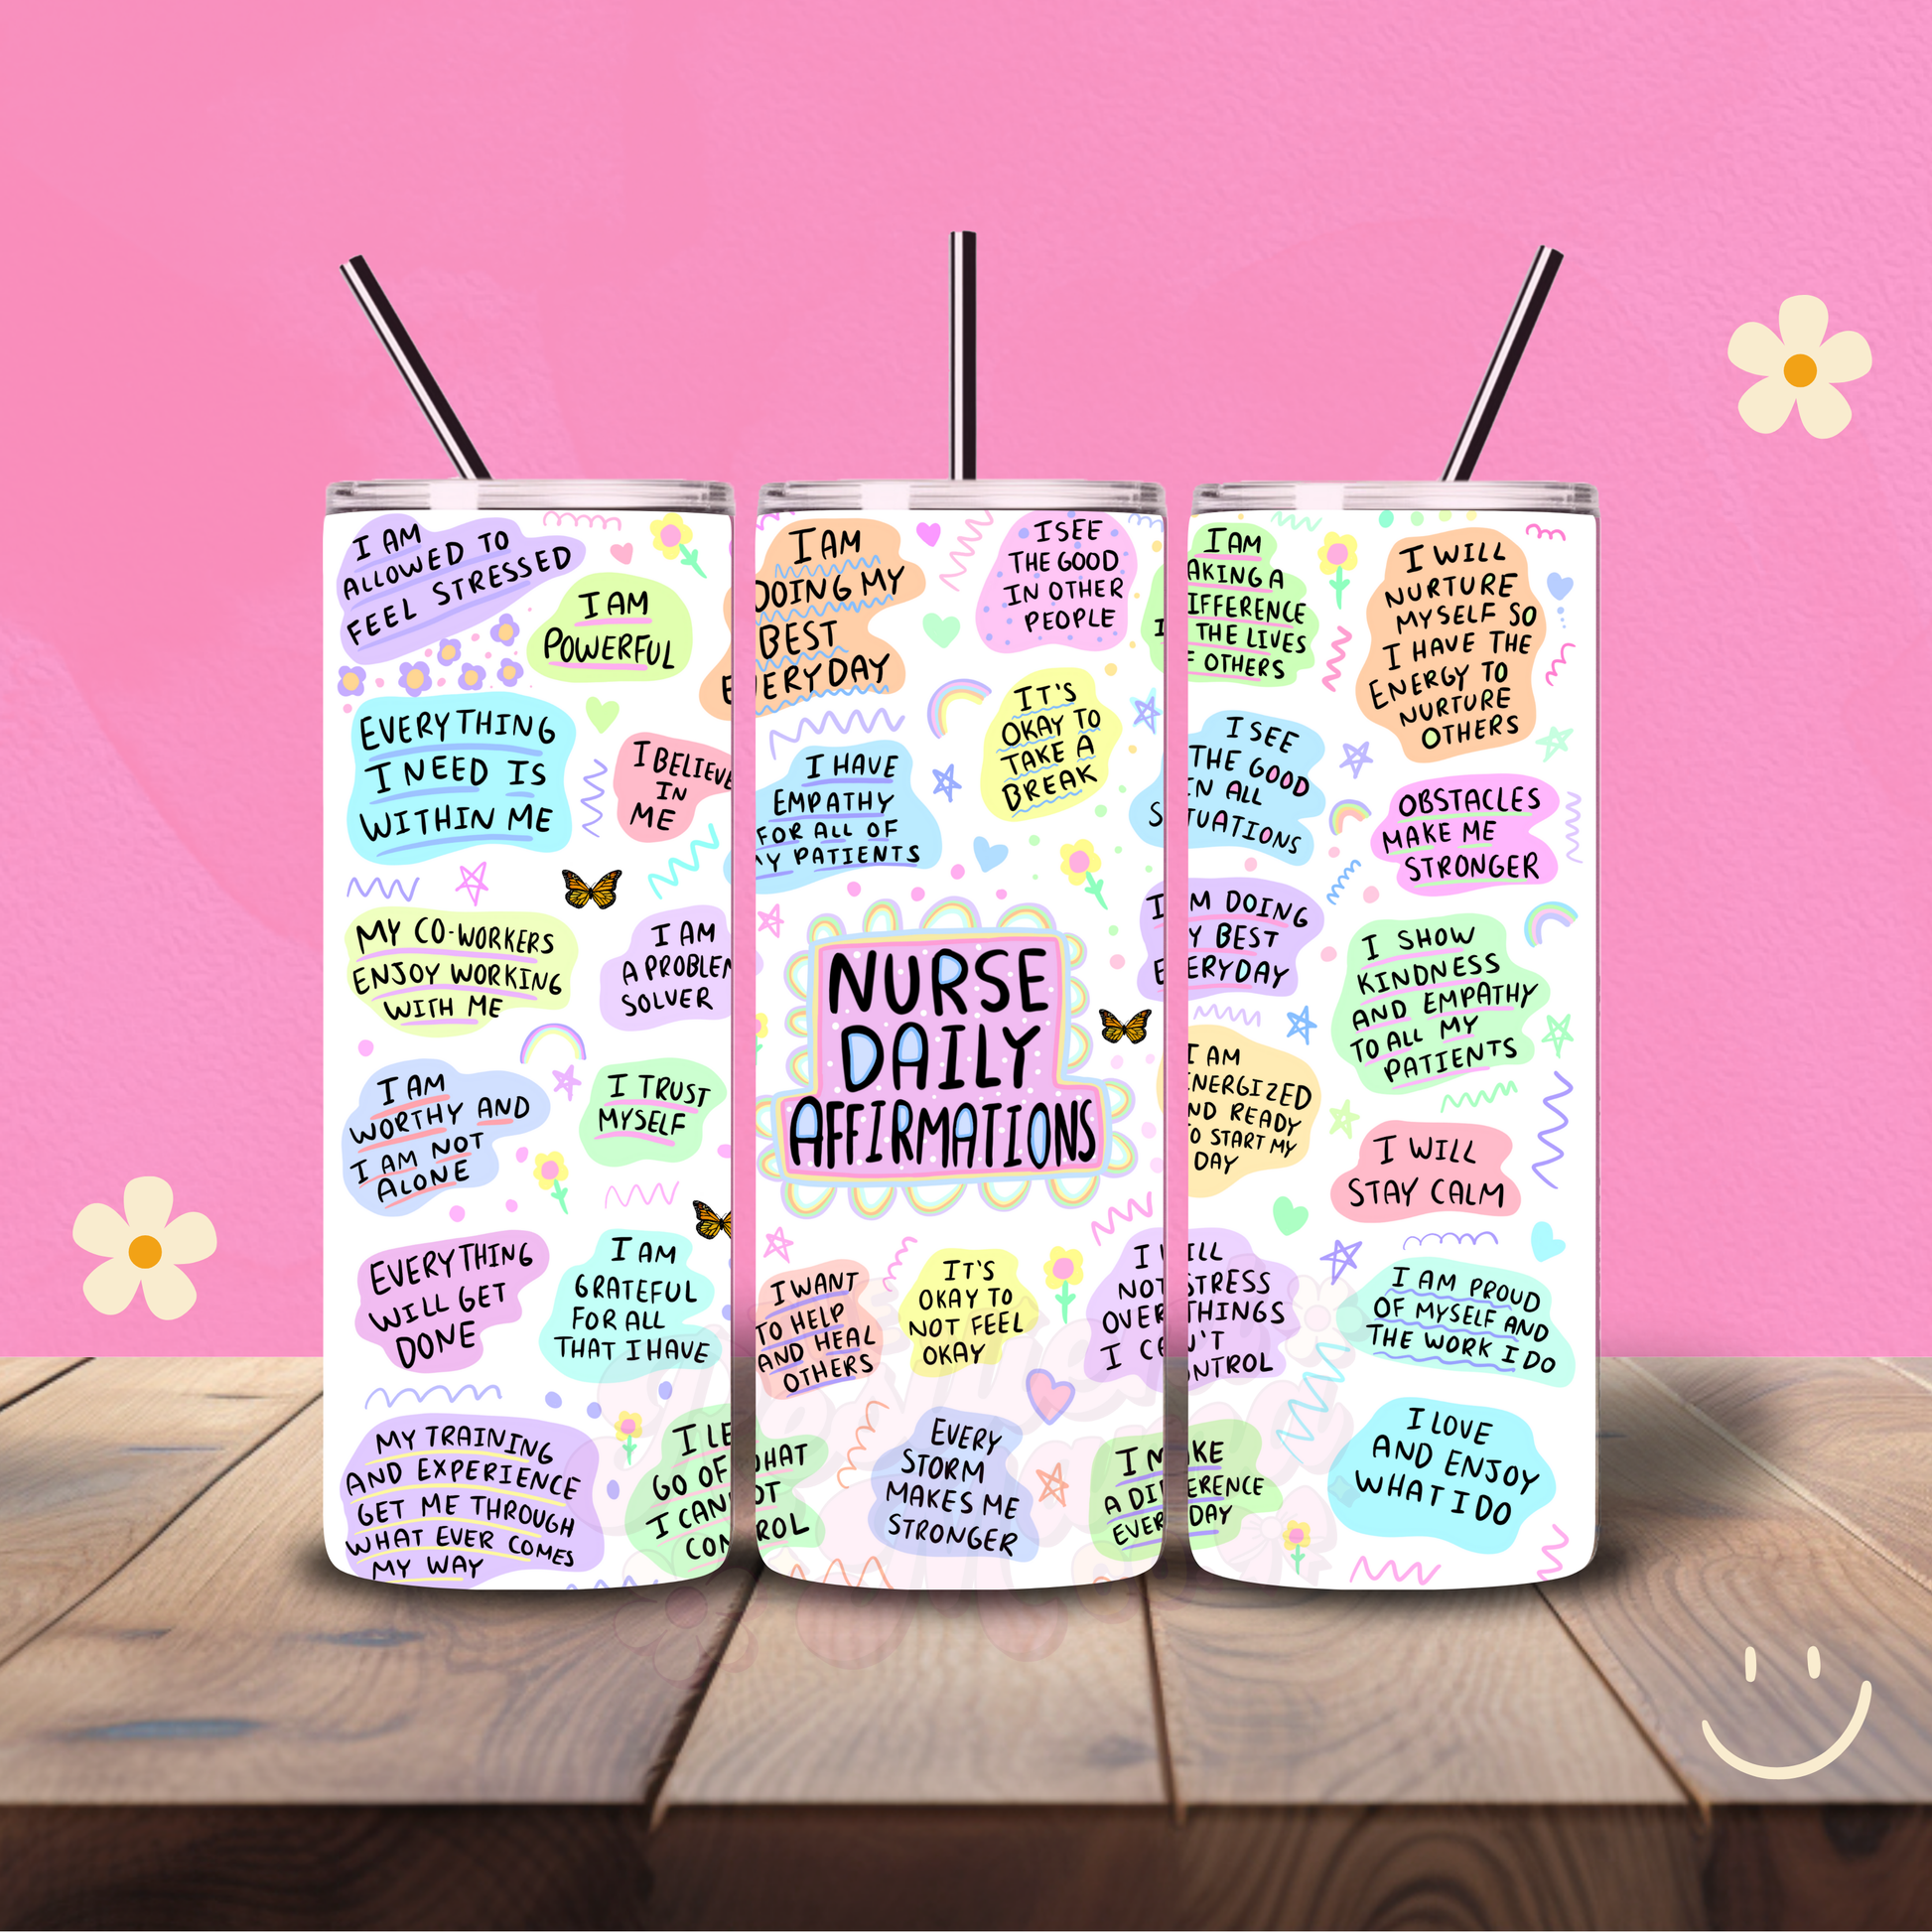 I AM
ALLOWED TO
FEEL STRESSED
I AM
POWERFUL
EVERYTHING
I NEED IS
WITHIN ME
I BELIEVE
IN
ME
MY CO-WORKERS
ENJOY WORKING
WITH ME
I AM
A PROBLEM
SOLVER
I AM
WORTHY AND
I AM NOT
ALONE
I TRUST
MYSELF
EVERYTHING
WILL GET
DONE
I AM
GRATEFUL
FOR ALL
THAT I HAVE
MY TRAINING
AND EXPERIENCE
GET ME THROUGH
WHAT EVER COMES
MY WAY
I LE
GO OF
I CAN
CON
I AM
DOING MY
BEST
EVERYDAY
I SEE
THE GOOD
IN OTHER
PEOPLE
IT'S
OKAY TO
TAKE A
BREAK
I HAVE
EMPATHY
FOR ALL OF
MY PATIENTS
NURSE
DAILY
AFFIRMATIONS
I WANT
TO HELP
AND HEAL
OTHERS
IT'S
OKAY TO
NOT FEEL
OKAY
WHAT
OT
ROL
EVERY
STORM
MAKES ME
STRONGER
I AM
AKING A
IFFERENCE
THE LIVES
F OTHERS
I WILL
NURTURE
MYSELF SO
I HAVE THE
ENERGY TO
NURTURE
OTHERS
I SEE
THE GOOD
IN ALL
SITUATIONS
OBSTACLES
MAKE ME
STRONGER
I AM DOING
MY BEST
EVERYDAY
I SHOW
KINDNESS
AND EMPATHY
TO ALL MY
PATIENTS
I AM
ENERGIZED
AND READY
TO START MY
DAY
I WILL
STAY CALM
I WILL
NOT STRESS
OVER THINGS
I CAN'T
CONTROL
I AM PROUD
OF MYSELF AND
THE WORK I DO
I MAKE
A DIFFERENCE
EVERYDAY
I LOVE
AND ENJOY
WHAT I DO